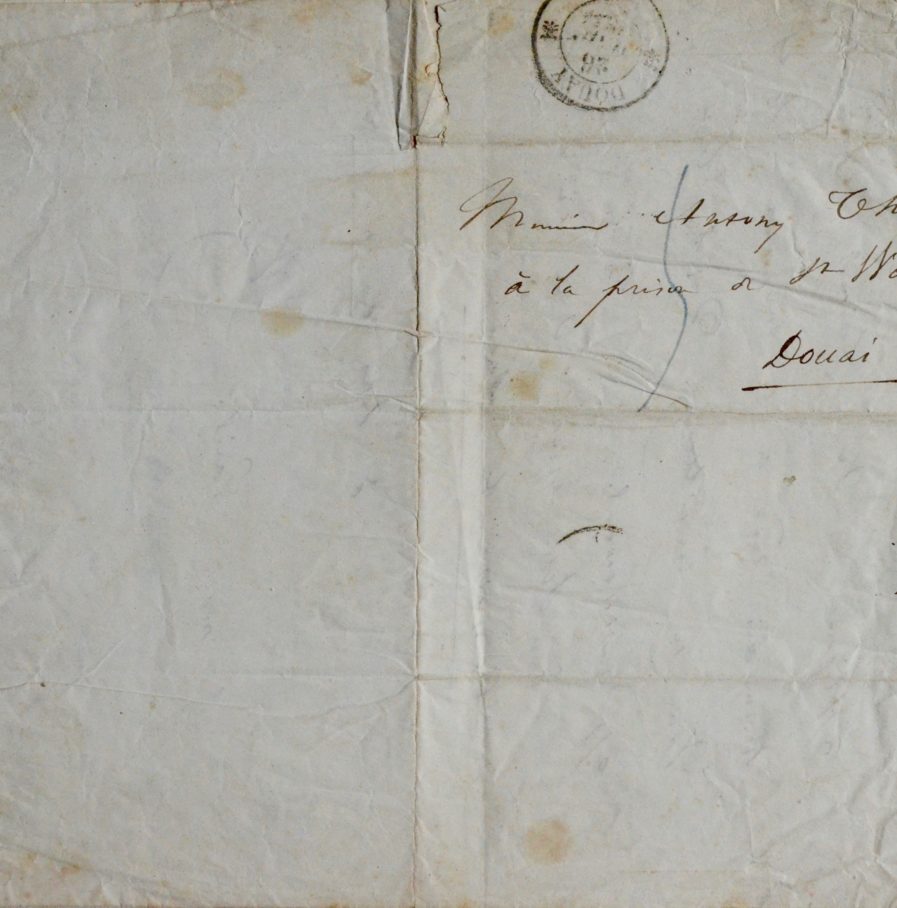 26
DOUAY
Monsieur Antony Th
à la prison de St Wa
Douai